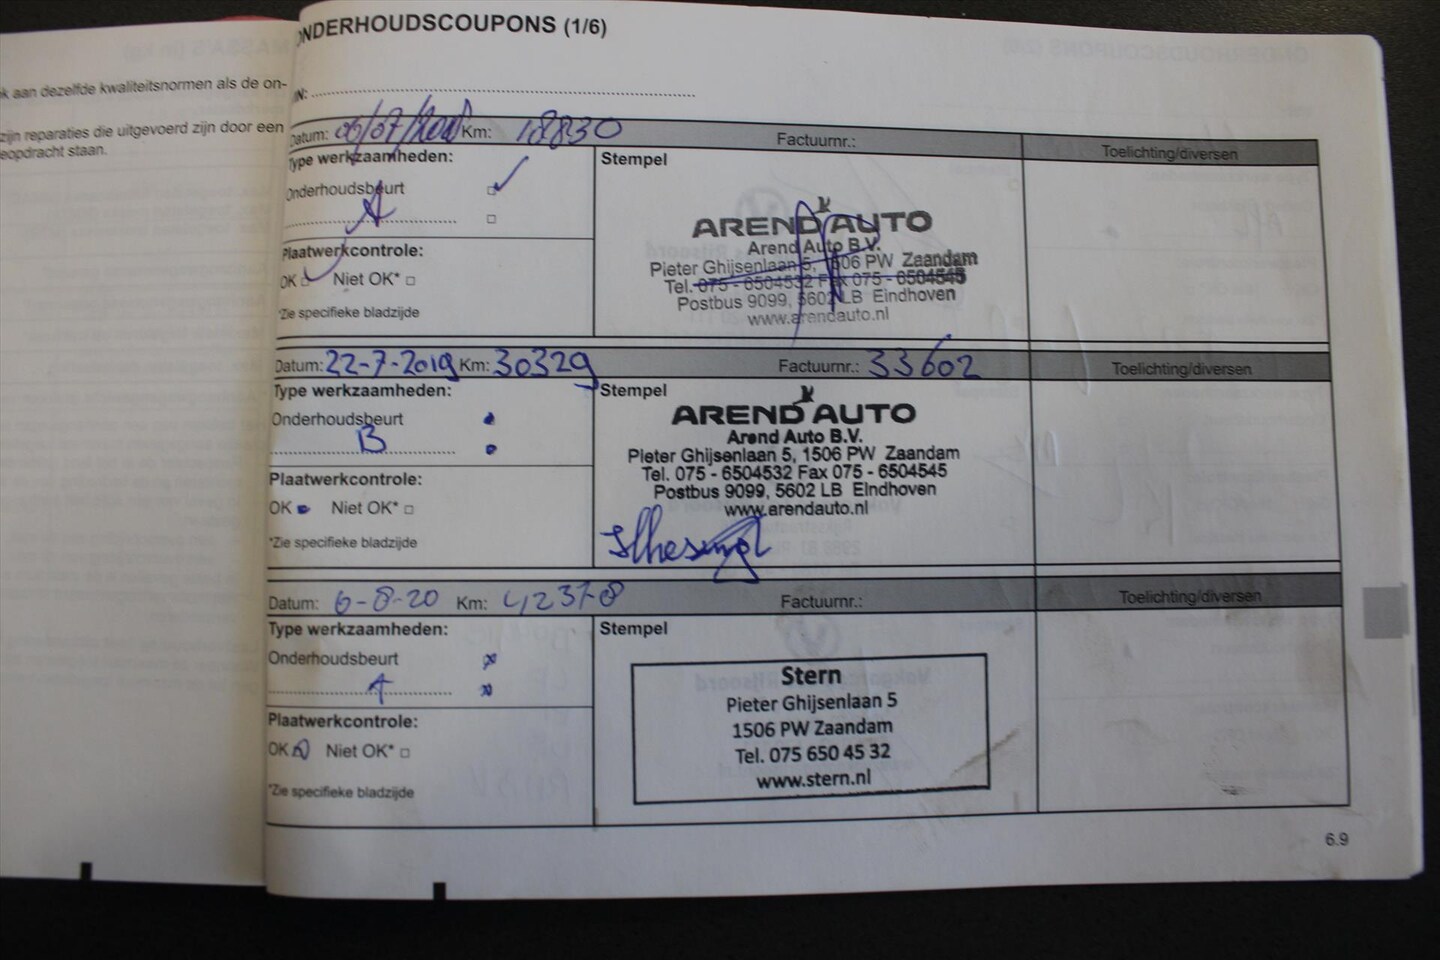 k aan dezelfde kwaliteitsnormen als de on-
zijn reparaties die uitgevoerd zijn door een
eopdracht staan.
ONDERHOUDSCOUPONS (1/6)
Datum: 06/07/ Km: 18830 Factuurnr.: Toelichting/diversen
Type werkzaamheden: Stempel
Onderhoudsbeurt
A
Plaatwerkcontrole:
OK Niet OK*
*Zie specifieke bladzijde
AREND AUTO
Arend Auto B.V.
Pieter Ghijsenlaan 5, 1506 PW Zaandam
Tel. 075 - 6504532 Fax 075 - 6504545
Postbus 9099, 5602 LB Eindhoven
www.arendauto.nl
Datum: 22-7-2019 Km: 30329 Factuurnr.: 33602 Toelichting/diversen
Type werkzaamheden: Stempel
Onderhoudsbeurt
B
Plaatwerkcontrole:
OK Niet OK*
*Zie specifieke bladzijde
AREND AUTO
Arend Auto B.V.
Pieter Ghijsenlaan 5, 1506 PW Zaandam
Tel. 075 - 6504532 Fax 075 - 6504545
Postbus 9099, 5602 LB Eindhoven
www.arendauto.nl
Datum: 6-8-20 Km: 42378 Factuurnr.: Toelichting/diversen
Type werkzaamheden: Stempel
Onderhoudsbeurt
A
Plaatwerkcontrole:
OK Niet OK*
*Zie specifieke bladzijde
Stern
Pieter Ghijsenlaan 5
1506 PW Zaandam
Tel. 075 650 45 32
www.stern.nl
6.9